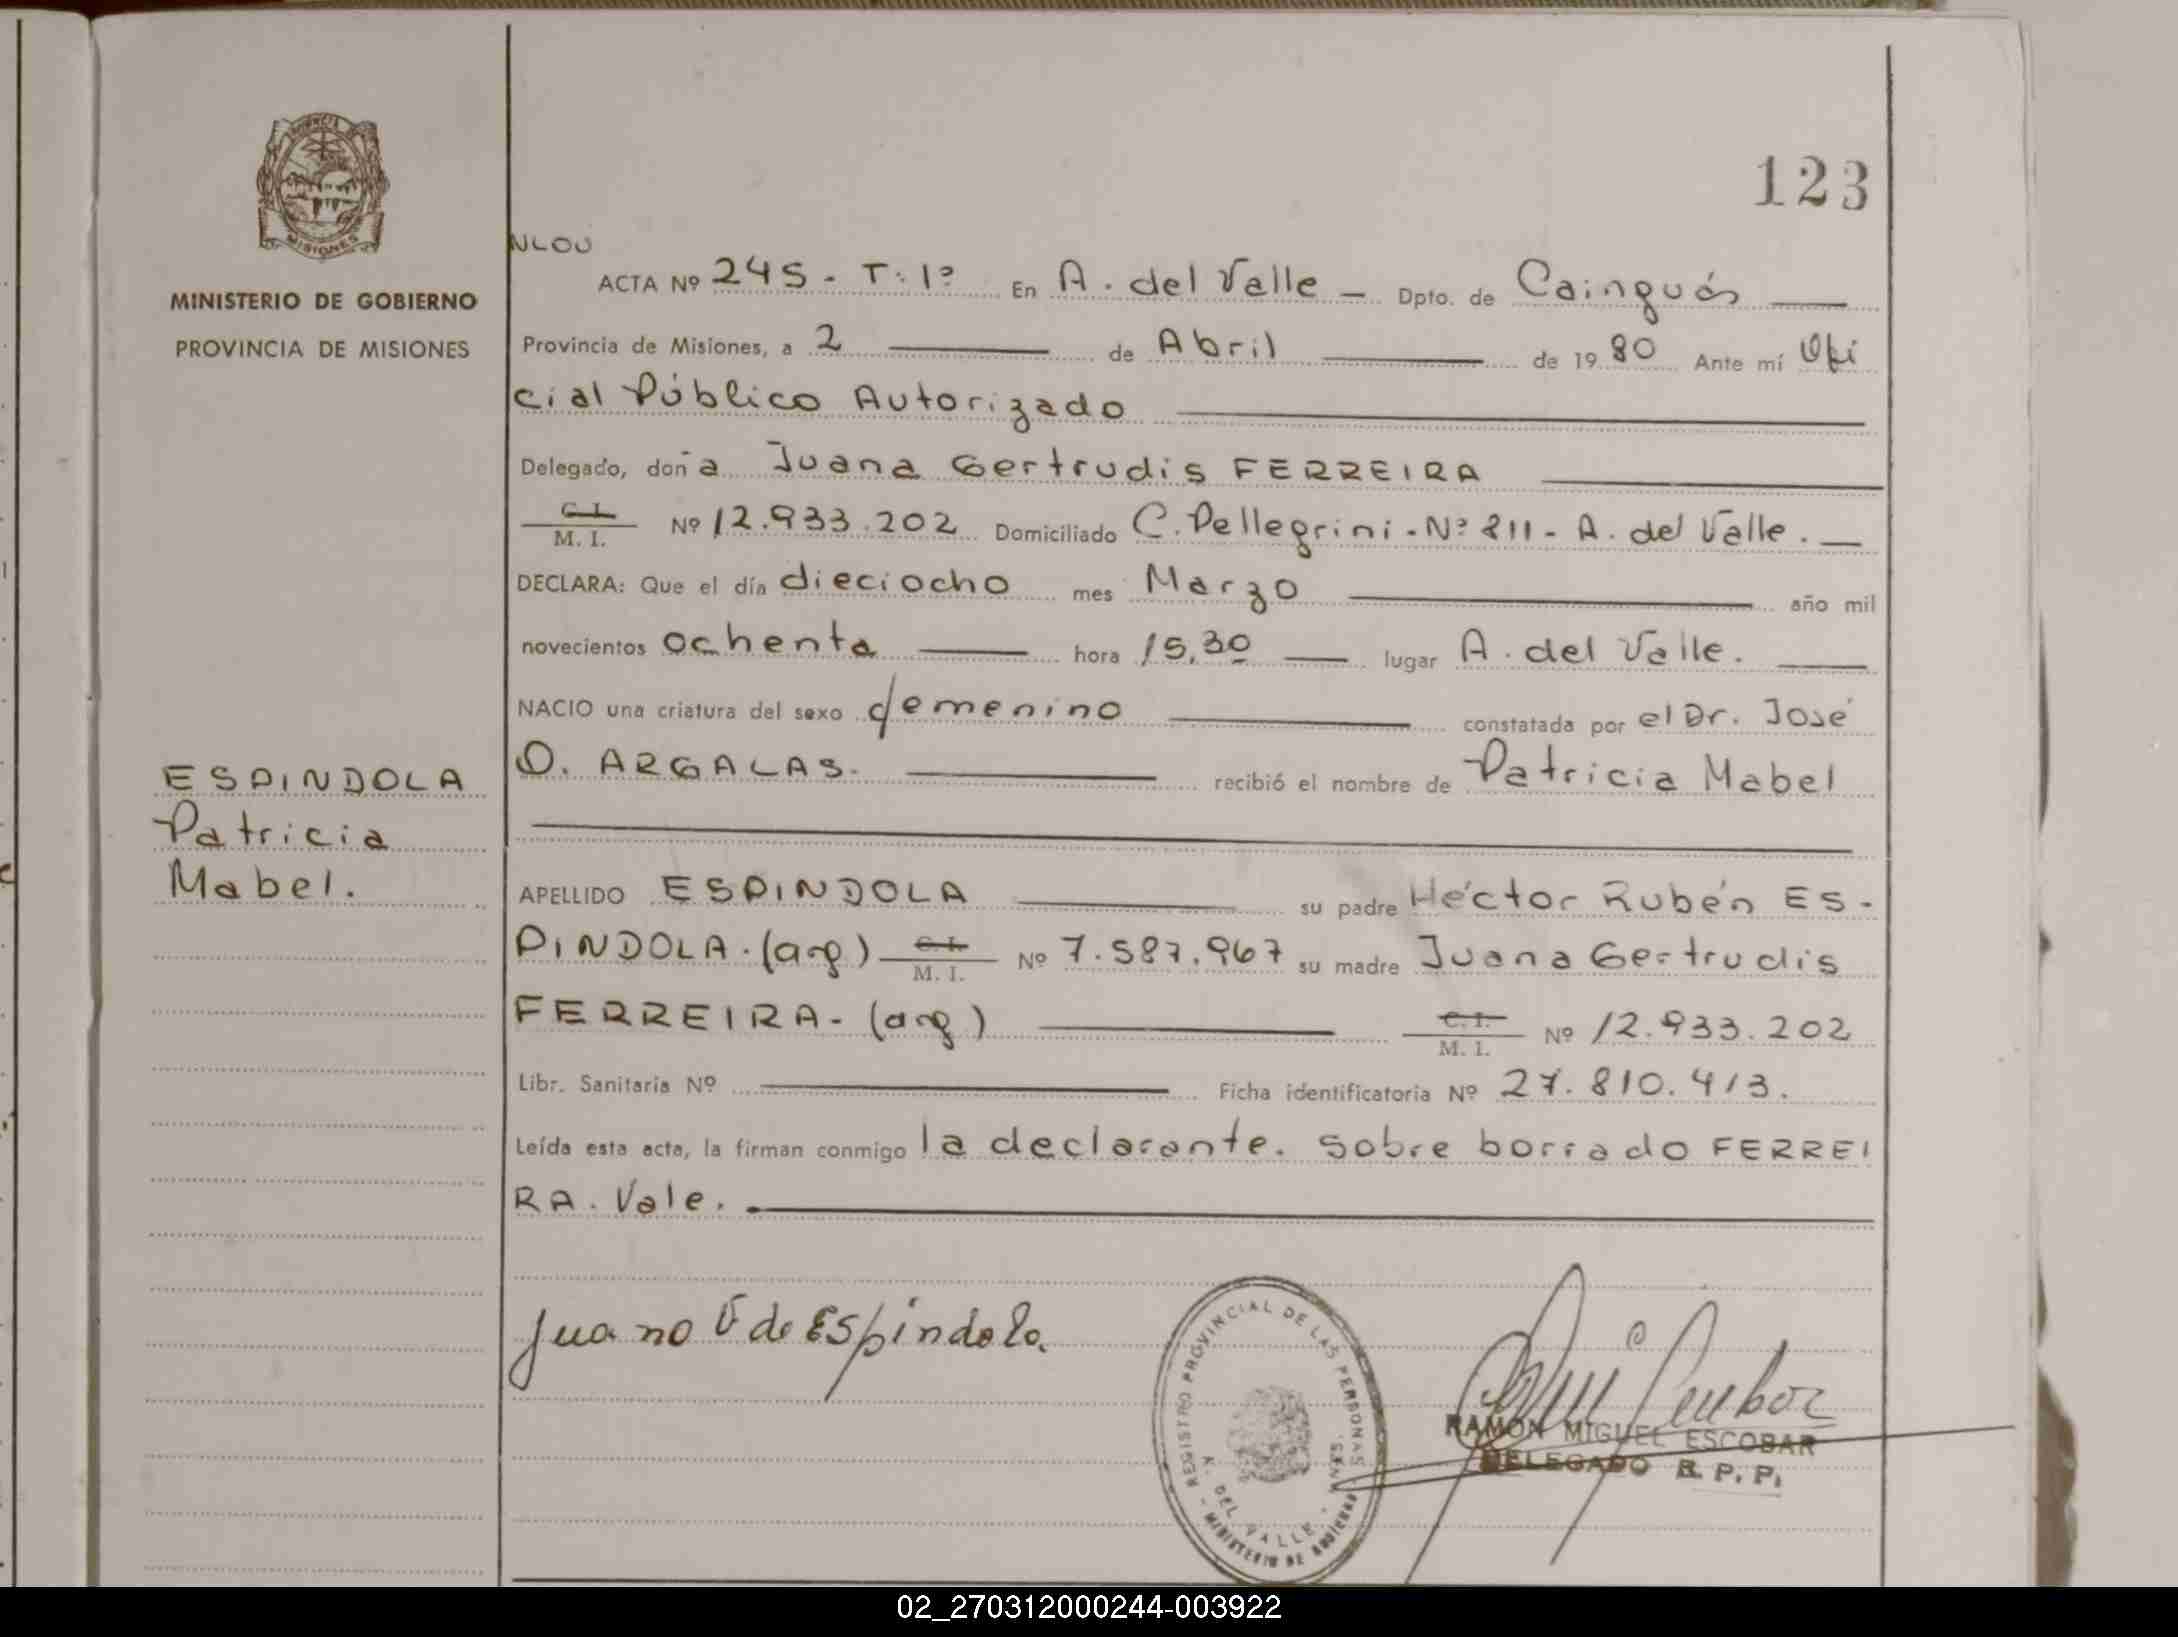 PROVINCIA DE
MISIONES
MINISTERIO DE GOBIERNO
PROVINCIA DE MISIONES
ESPINDOLA
Patricia
Mabel.
123
NLOU
ACTA Nº 245 - T: 1º En A. del Valle - Dpto. de Cainguás
Provincia de Misiones, a 2 de Abril de 1980 Ante mí Ofi
cial Público Autorizado
Delegado, doña Juana Gertrudis FERREIRA
C. I.
M. I. Nº 12.933.202 Domiciliado C. Pellegrini - Nº 811 - A. del Valle.
DECLARA: Que el día dieciocho mes Marzo año mil
novecientos ochenta hora 15,30 lugar A. del Valle.
NACIO una criatura del sexo femenino constatada por el Dr. José
O. ARGALAS. recibió el nombre de Patricia Mabel
APELLIDO ESPINDOLA su padre Héctor Rubén ES-
PINDOLA. (arg) C. I. M. I. Nº 7.587.967 su madre Juana Gertrudis
FERREIRA- (arg) C. I. M. I. Nº 12.933.202
Libr. Sanitaria Nº Ficha identificatoria Nº 27.810.413.
Leída esta acta, la firman conmigo la declarante. Sobre borrado FERREI
RA. Vale.
Juana F de Espindola.
REGISTRO PROVINCIAL DE LAS PERSONAS
A. DEL VALLE
MINISTERIO DE GOBIERNO
RAMON MIGUEL ESCOBAR
DELEGADO R. P. P.
02_270312000244-003922